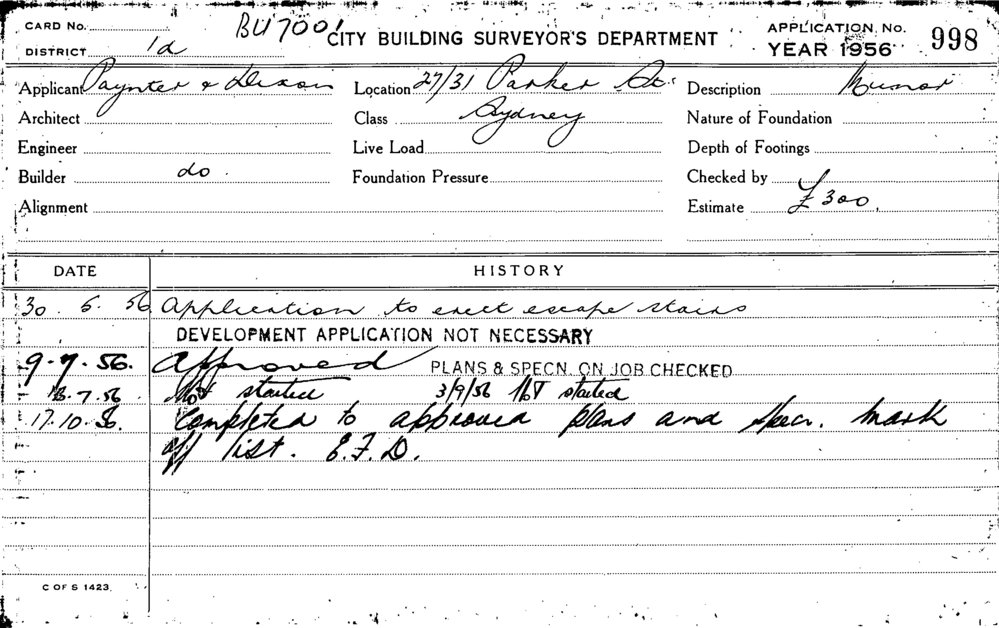 CARD No. BU 7001 CITY BUILDING SURVEYOR'S DEPARTMENT APPLICATION No. 998
DISTRICT 1d YEAR 1956
Applicant Paynter & Dixon Location 27/31 Parker St. Description Minor
Architect Class Sydney Nature of Foundation
Engineer Live Load Depth of Footings
Builder do. Foundation Pressure Checked by
Alignment Estimate £300.
DATE HISTORY
30. 5. 56 Application to erect escape stairs
DEVELOPMENT APPLICATION NOT NECESSARY
9.7.56. Approved PLANS & SPECN. ON JOB CHECKED
7.56. Not started 3/9/56 Not started
17.10.56. Completed to approved plans and specn. Mark
off list. E.F.D.
C OF S 1423.